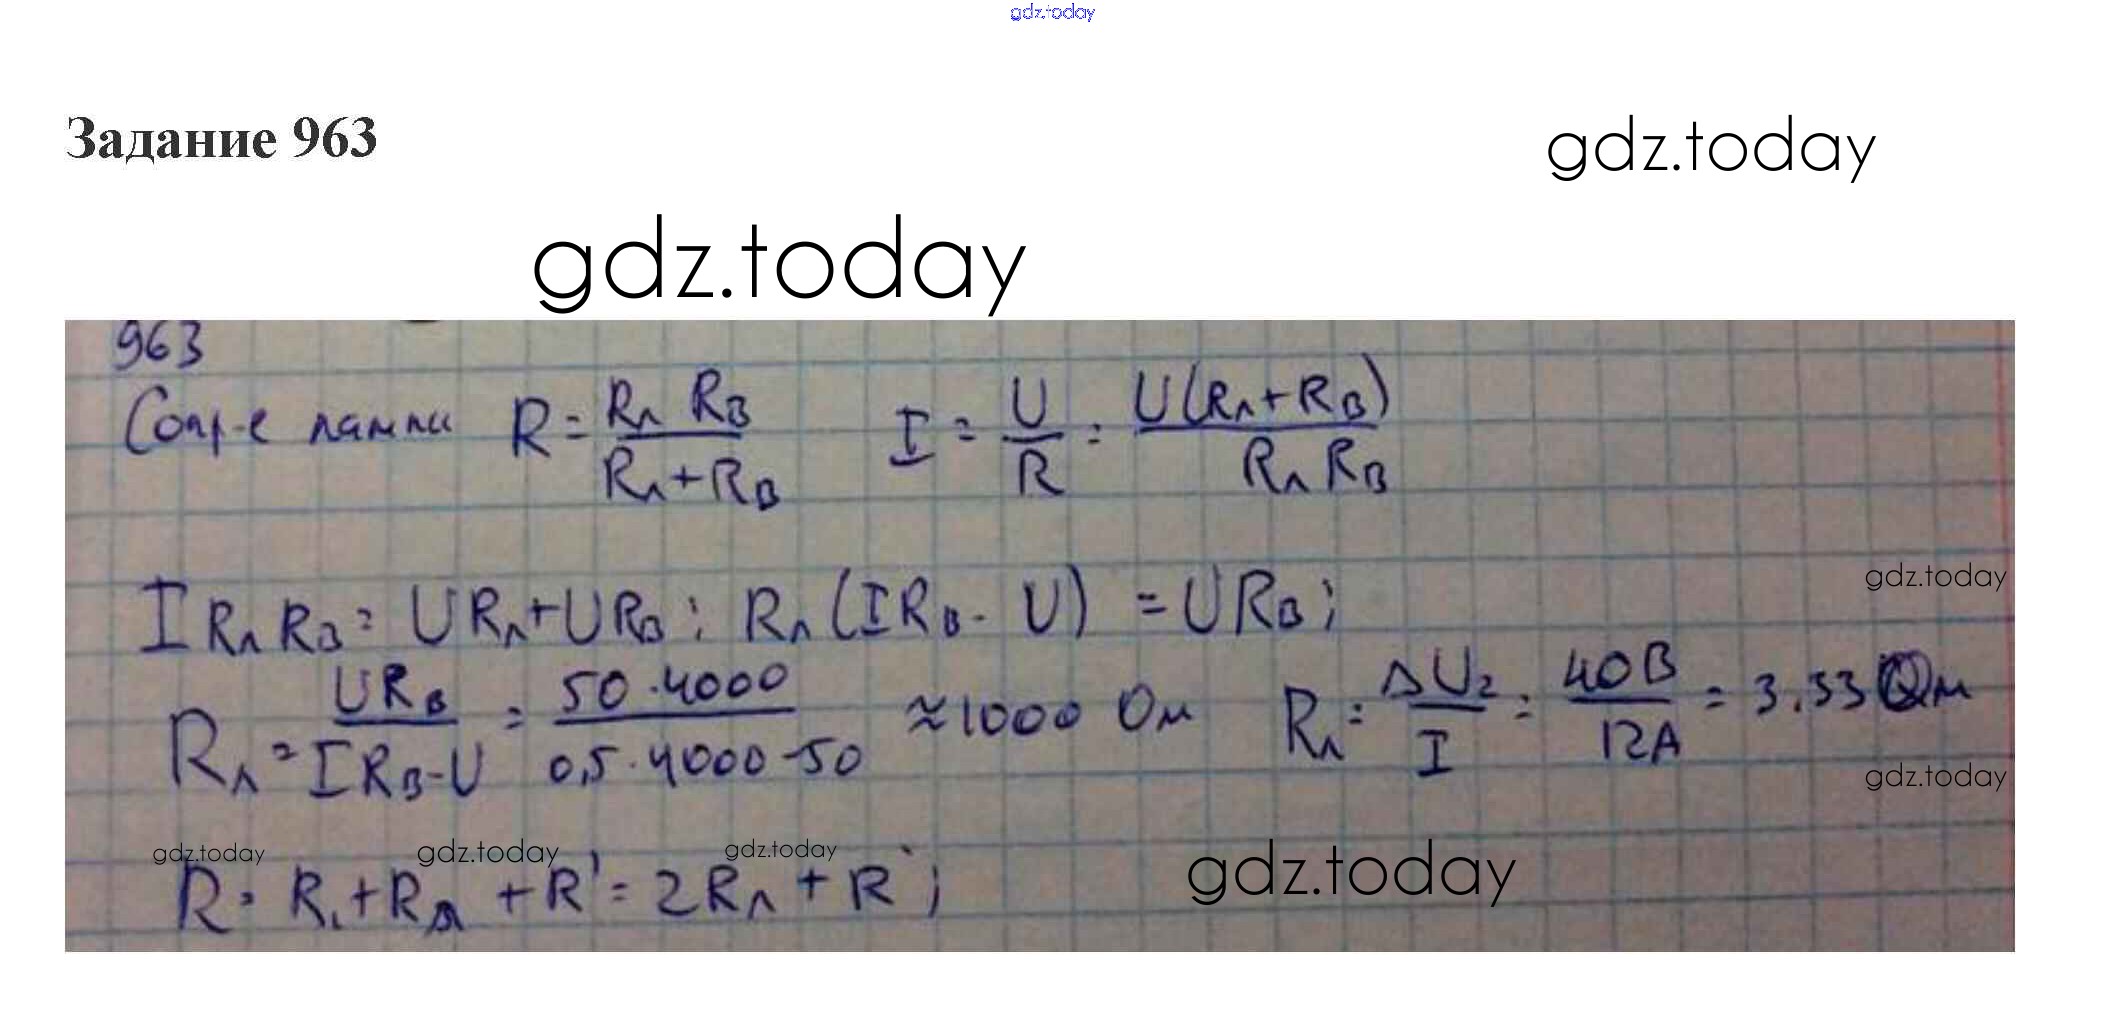 gdz.today
Задание 963
gdz.today
gdz.today
963
Сопр-е лампы R = Rл Rв / Rл + Rв I = U / R = U(Rл + Rв) / Rл Rв
gdz.today
I Rл Rв = U Rл + U Rв ; Rл (I Rв - U) = U Rв ;
Rл = U Rв / I Rв - U = 50 · 4000 / 0,5 · 4000 - 50 ≈ 1000 Ом Rл = ΔU₂ / I = 40В / 12А = 3.33 Ом
gdz.today
gdz.today gdz.today gdz.today gdz.today
R = R₁ + Rл + R' = 2Rл + R' ;